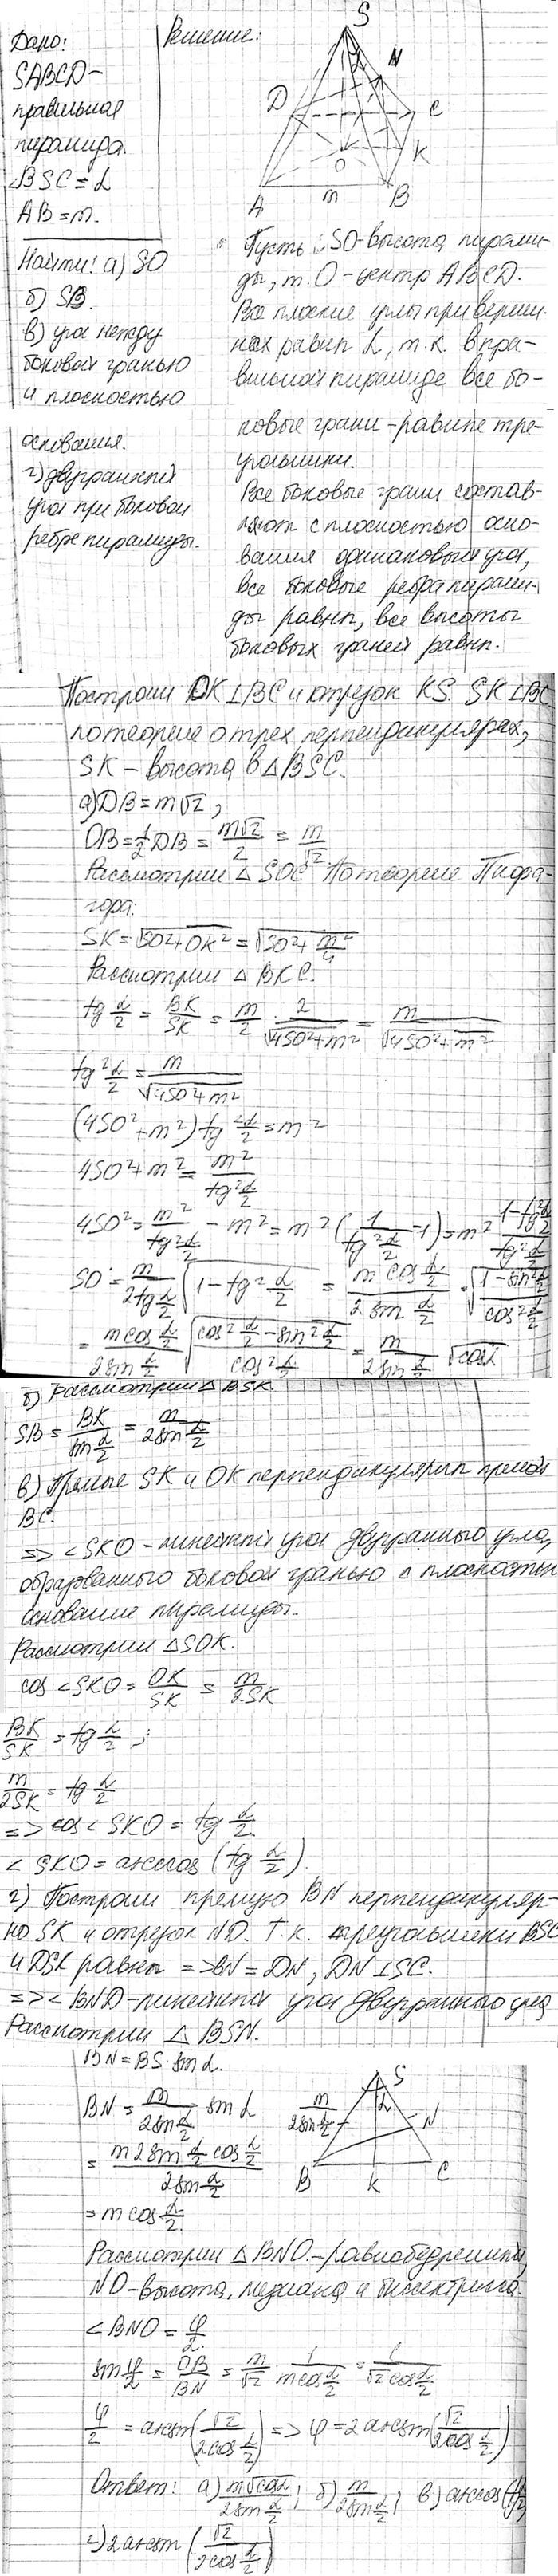 Дано:
SABCD-
правильная
пирамида.
∠BSC=α
AB=m.
Решение:
S
N
D
C
K
O
A
m
B
Найти: а) SO
б) SB.
в) угол между
боковой гранью
и плоскостью
основания.
г) двугранный
угол при боковом
ребре пирамиды.
Пусть SO-высота пирами-
ды, т. О-центр ABCD.
Все плоские углы при верши-
нах равны α, т.к. в пра-
вильной пирамиде все бо-
ковые грани-равные тре-
угольники.
Все боковые грани состав-
ляют с плоскостью осно-
вания одинаковый угол,
все боковые ребра пирами-
ды равны, все высоты
боковых граней равны.
Построим OK⊥BC и отрезок KS. SK⊥BC
по теореме о трех перпендикулярах,
SK-высота в △BSC.
а) DB=m√2;
OB=1/2 DB= m√2/2 = m/√2
Рассмотрим △ SOC По теореме Пифа-
гора:
SK=√(SO²+OK²)=√(SO²+m²/4)
Рассмотрим △ BKC.
tg α/2 = BK/SK = m/2 · 2/√(4SO²+m²) = m/√(4SO²+m²)
tg² α/2 = m/√(4SO²+m²)
(4SO²+m²)tg² α/2=m²
4SO²+m²= m²/tg² α/2
4SO²= m²/tg² α/2 - m²=m²(1/tg² α/2 -1)=m² (1-tg² α/2)/tg² α/2
SO= m/2tg α/2 √(1-tg² α/2) = m cos α/2 / 2 sin α/2 · √(1-sin² α/2 / cos² α/2)
= m cos α/2 / 2sin α/2 √(cos² α/2 - sin² α/2 / cos² α/2) = m/2sin α/2 √cosα
б) Рассмотрим △ BSK.
SB= BK/sin α/2 = m/2sin α/2
в) Прямые SK и OK перпендикулярны прямой
BC.
=> ∠SKO-линейный угол двугранного угла,
образованного боковой гранью и плоскостью
основание пирамиды.
Рассмотрим △SOK.
cos ∠SKO= OK/SK = m/2SK
BK/SK = tg α/2;
m/2SK = tg α/2
=> cos ∠ SKO = tg α/2.
∠ SKO = arccos (tg α/2).
г) Построим прямую BN перпендикуляр-
но SK и отрезок ND. Т.к. треугольники BSC
и DSK равны =>BN=DN, DN⊥SC.
=> ∠ BND-линейный угол двугранного угла
Рассмотрим △ BSN.
BN=BS·sin α.
BN= m/2sin α/2 · sin α
= m 2sin α/2 cos α/2 / 2sin α/2
= m cos α/2.
S
α
m/2sin α/2
N
B
K
C
Рассмотрим △BNO-равнобедренный,
NO-высота, медиана и биссектриса.
∠BNO= φ/2.
sin φ/2 = OB/BN = m/√2 · 1/mcos α/2 = 1/√2 cos α/2
φ/2 = arcsin(√2/2cos α/2) => φ=2 arcsin(√2/2cos α/2)
Ответ: а) m√cosα/2sin α/2; б) m/2sin α/2; в) arccos(tg α/2)
г) 2 arcsin (√2/2cos α/2)